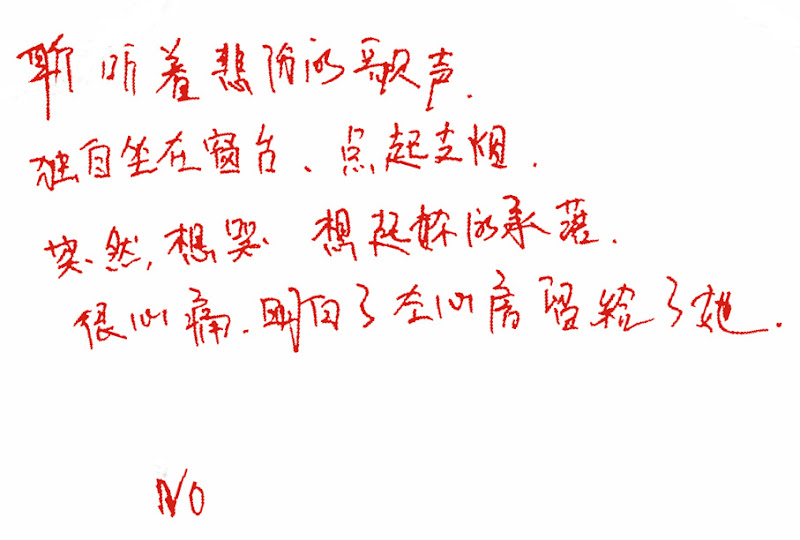 聆听着悲伤的歌声.
独自坐在窗台、点起支烟.
突然,想哭 想起你的承诺.
很心痛.明白了左心房留给了她.
NO